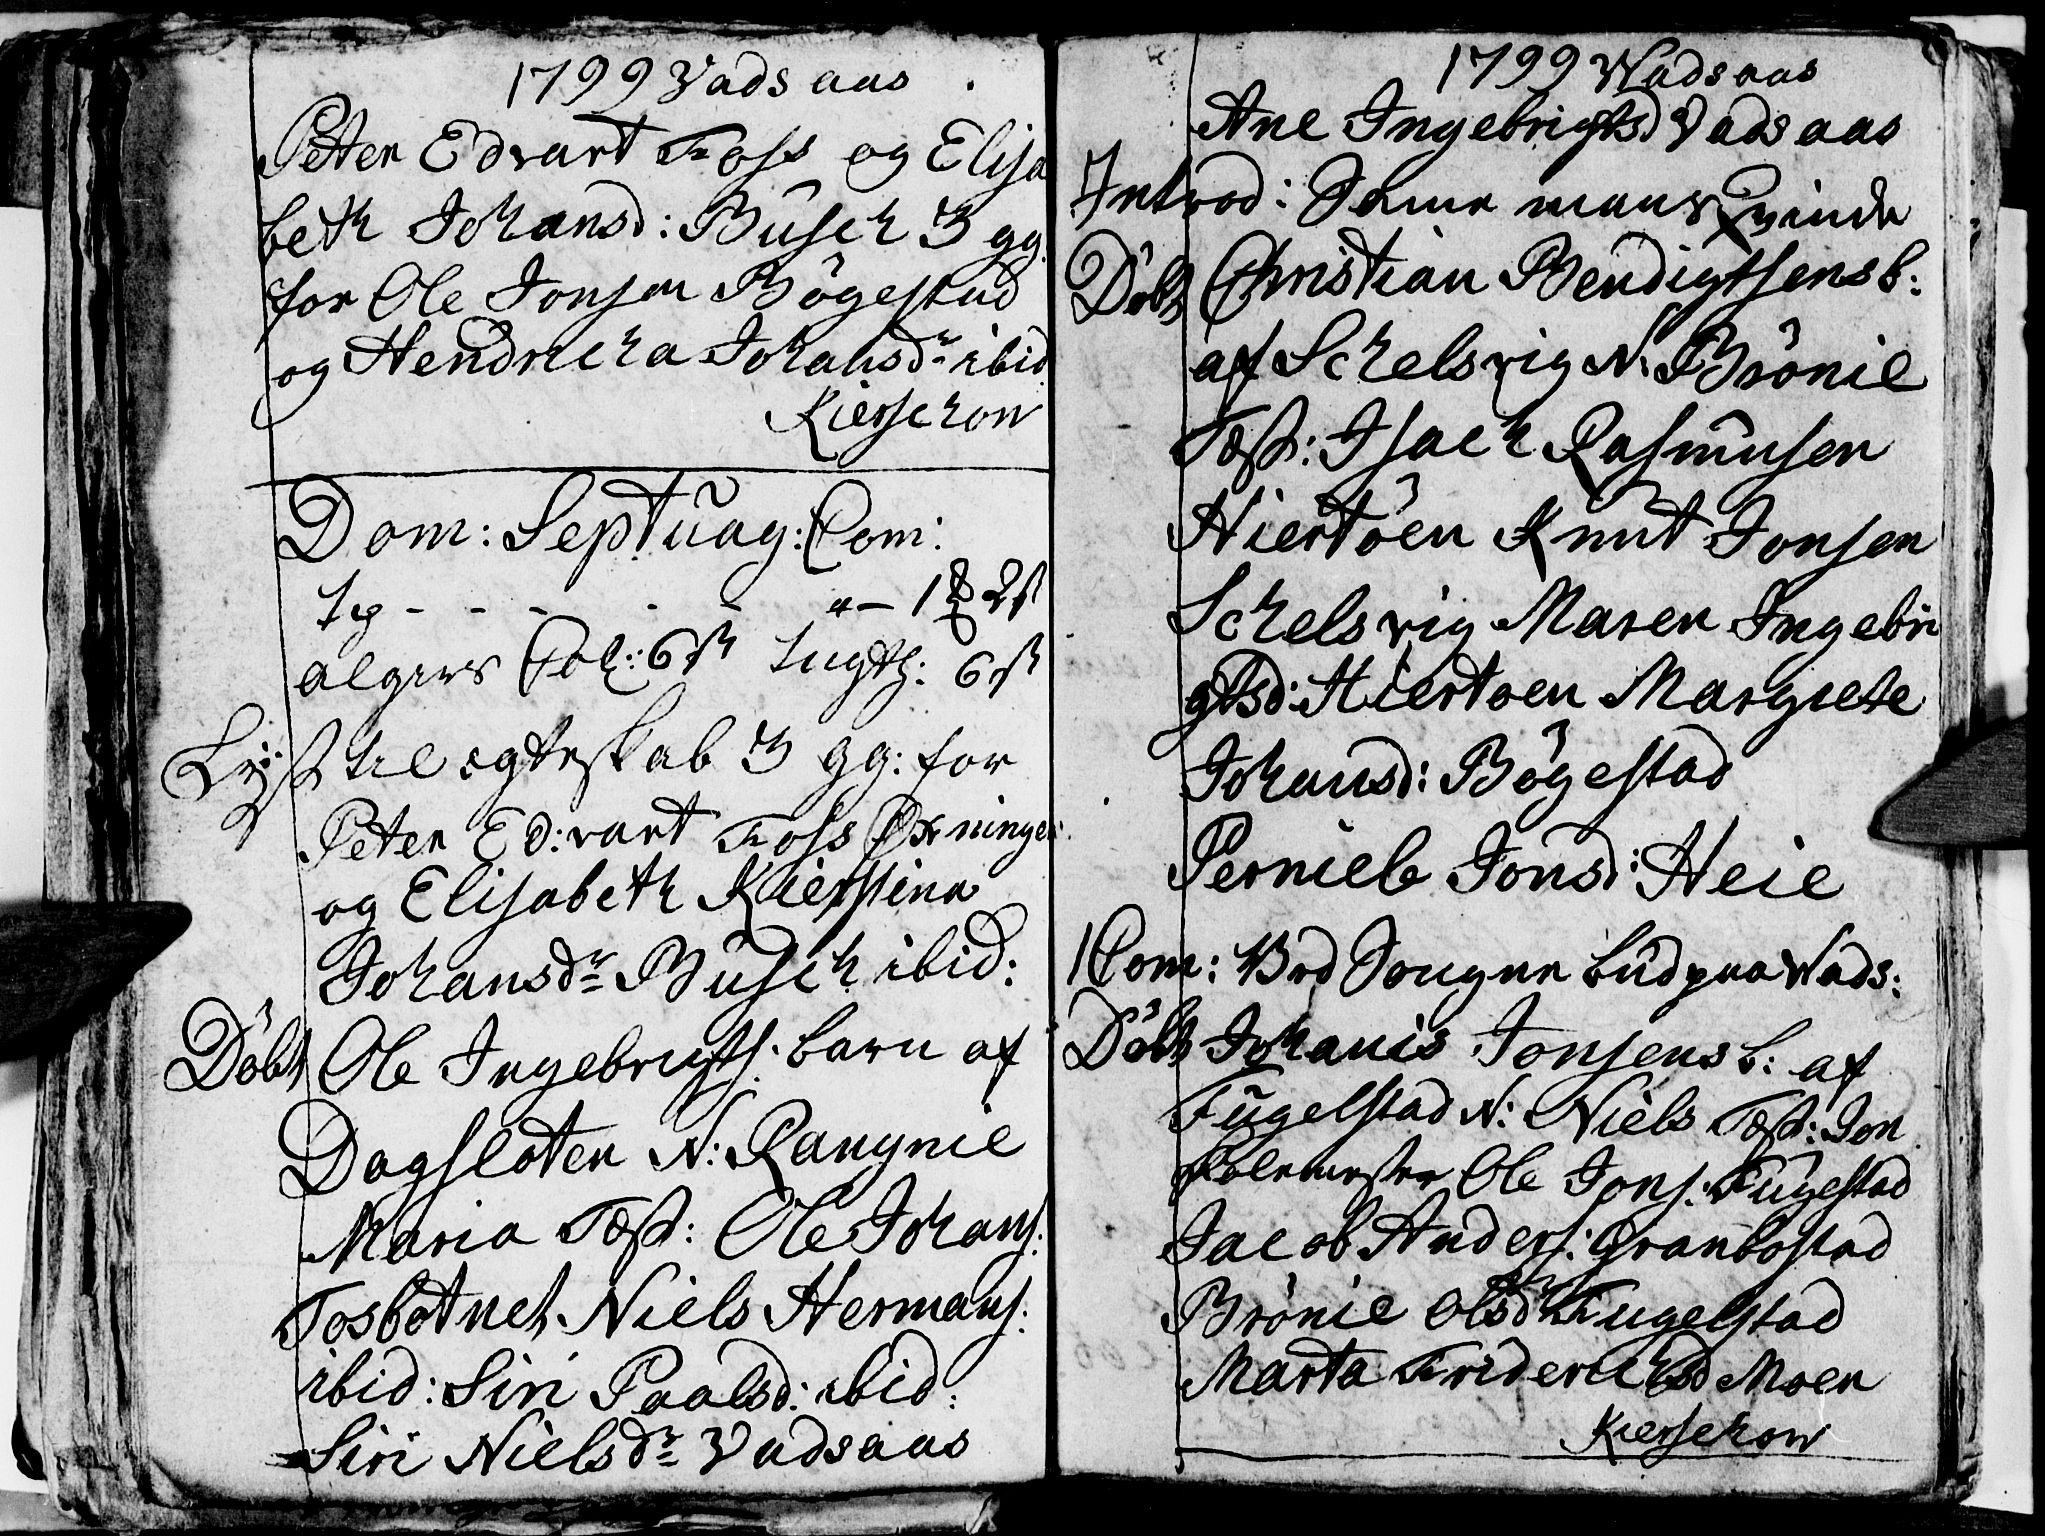 1799 Vadsaas
Peter Edvart Foss og Elisa
beth Johansd: Busch 3 gg
for Ole Jonsen Bögestad
og Hendricha Johansdr ibid
Kierschow
Dom: Septuag: Com:
Tf - - - - - "- 1 ℔ 2ß
algiers Col: 6ß Tugth: 6ß
Lÿst til egteskab 3 gg: for
Peter Ed:vart Foss Øxninger
og Elisabeth Kierstina
Johansdr Busch ibid:
Döbt Ole Ingebrigts: barn af
Dagsloten N: Rangnil
Maria Test: Ole Johans:
Tosbotnet Niels Hermans:
ibid: Siri Paalsd: ibid:
Siri Nielsdr Vadsaas
1799 Wadsaas
Ane Ingebrigtsd Vadsaas
Introd: Samme mands Qvinde
Döbt Christian Bendigtsens b:
af Schelsvig N: Brönie
Test: Isach Rasmusen
Hiertöen Knut Jonsen
Schelsvig Maren Ingebri
gtsd: Hiertoen Margrete
Johansd: Bögestad
Perniele Jonsd: Heie
1 Com: Ved Sougne bud paa Vads:
Döbt Johanis Jonsens b: af
Fugelstad N: Niels Test: Jon
Ole Jons: Fugestad
Jacob Anders: Granbostad
Brönie Olsdr Fugelstad
Marta Friderichsd Moen
Kierschow